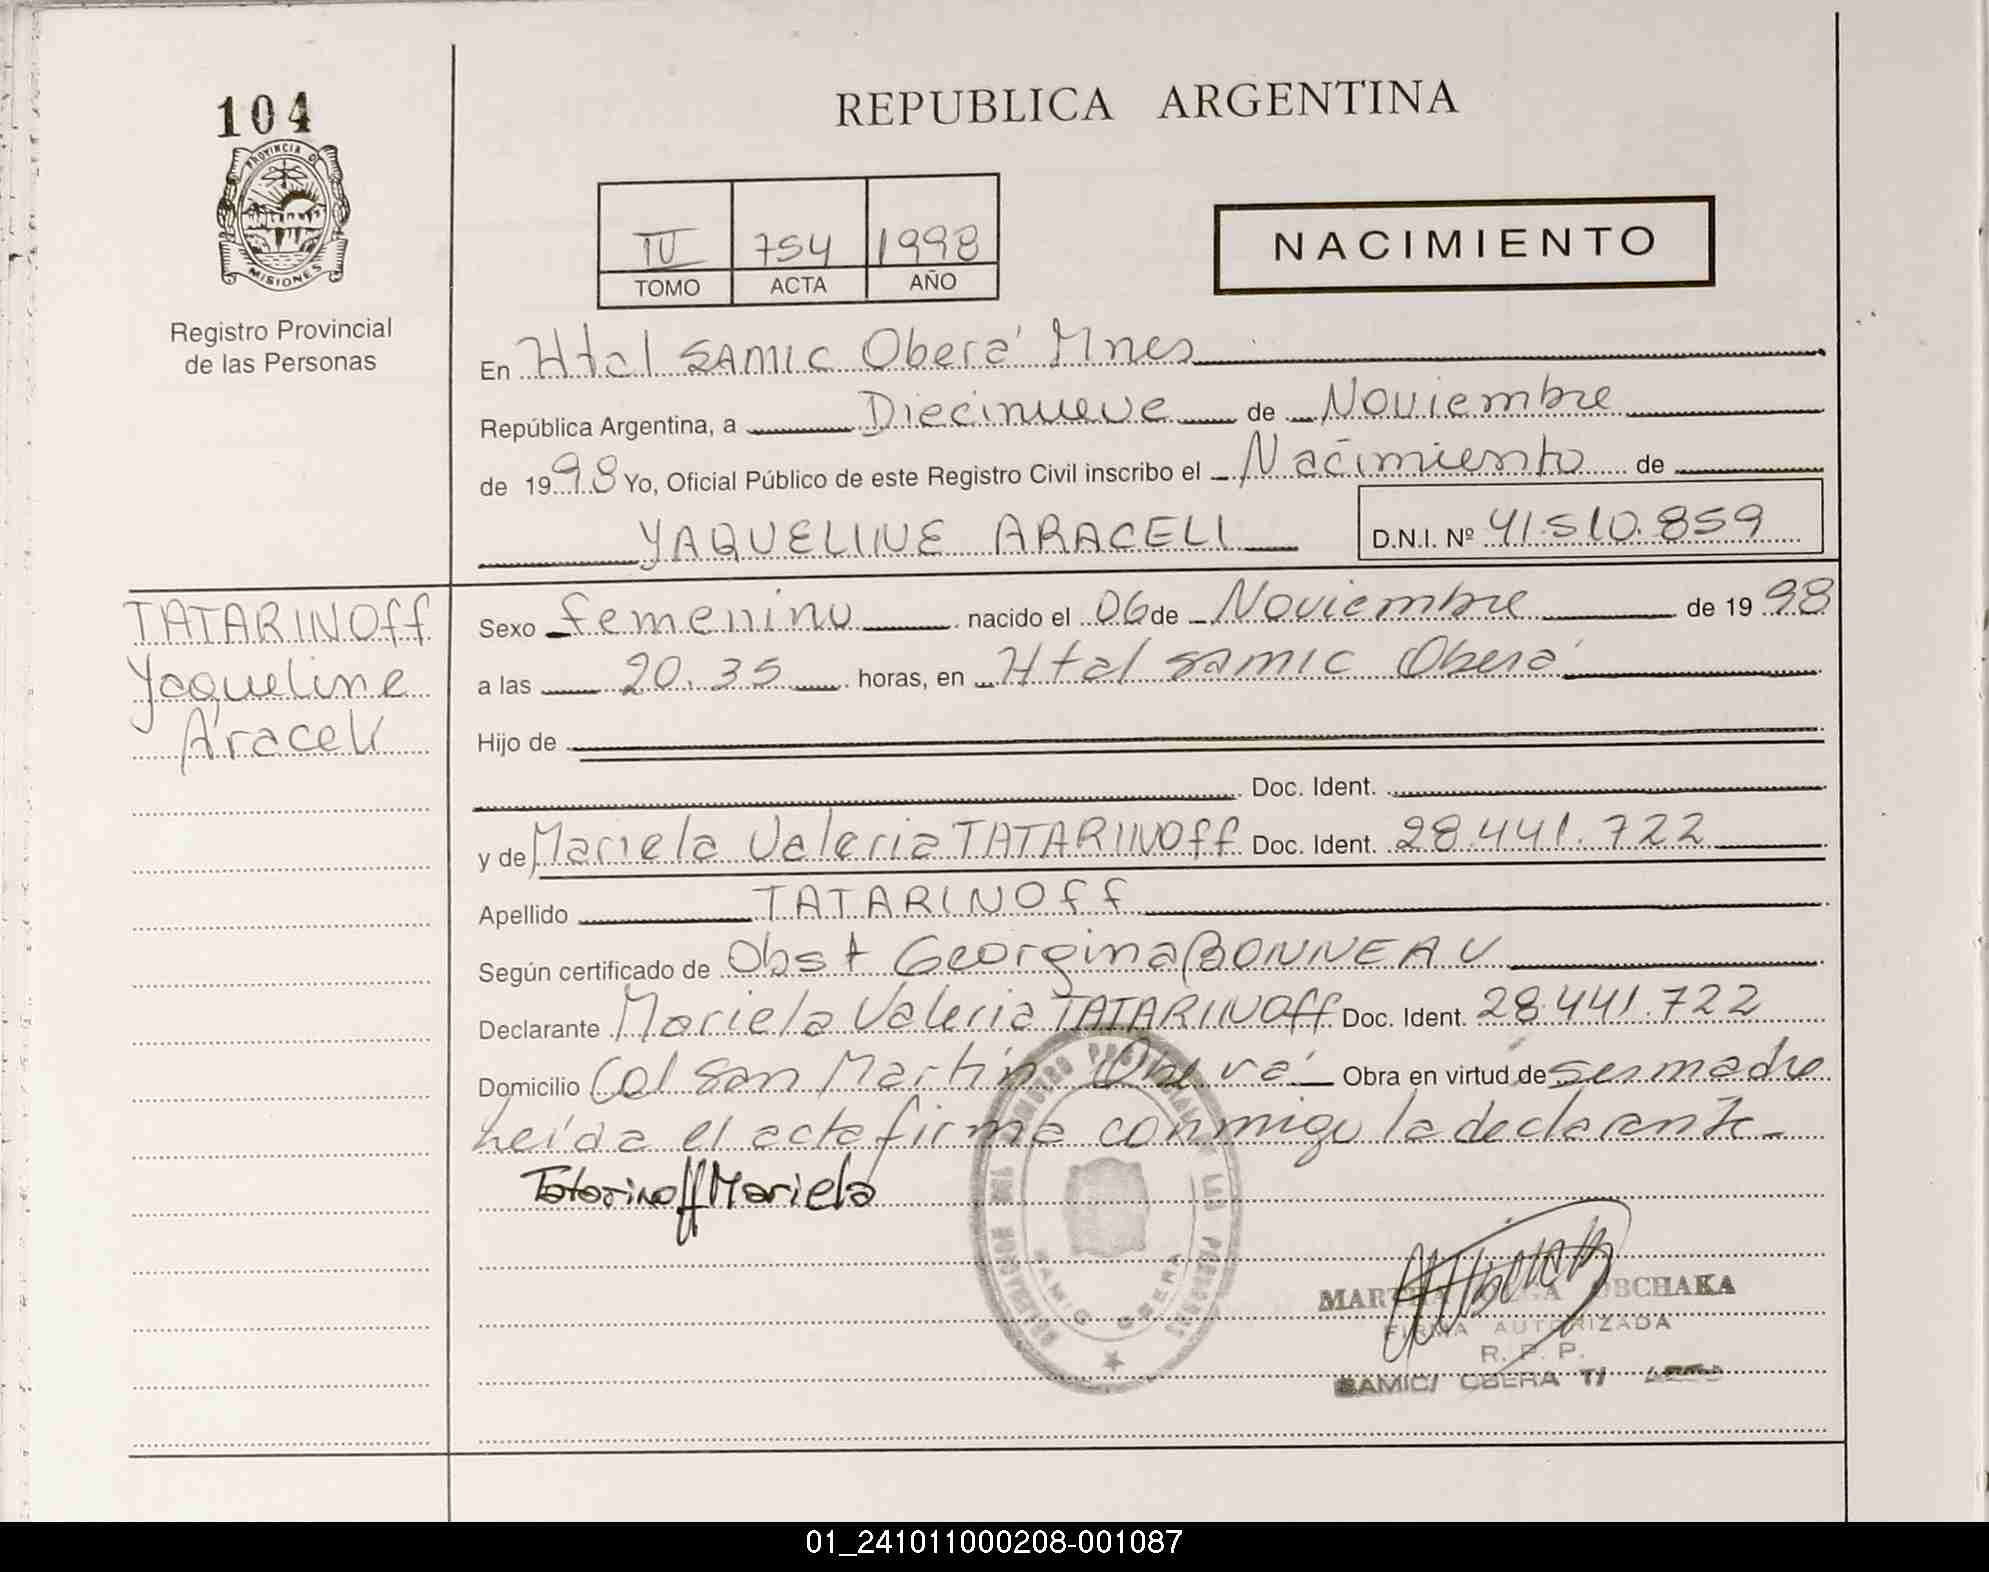 104
PROVINCIA DE
MISIONES
Registro Provincial
de las Personas
REPUBLICA ARGENTINA
IV 754 1998
TOMO ACTA AÑO
NACIMIENTO
En Htal SAMIC Oberá Mnes
República Argentina, a Diecinueve de Noviembre
de 1998 Yo, Oficial Público de este Registro Civil inscribo el Nacimiento de
YAQUELINE ARACELI D.N.I. Nº 41.510.859
TATARINOff
Yaqueline
Araceli
Sexo femenino nacido el 06 de Noviembre de 1998
a las 20.35 horas, en Htal SAMIC Oberá
Hijo de
Doc. Ident.
y de Mariela Valeria TATARINOff Doc. Ident. 28.441.722
Apellido TATARINOff
Según certificado de Obst Georgina BONNEAU
Declarante Mariela Valeria TATARINOff Doc. Ident. 28.441.722
Domicilio Col San Martín Oberá Obra en virtud de ser madre
heída el acta firma conmigo la declarante
Tatarinoff Mariela
SAMIC OBERA
MARTHA OLGA BCHAKA
FIRMA AUTORIZADA
R. P. P.
SAMIC/ OBERA T/
01_241011000208-001087